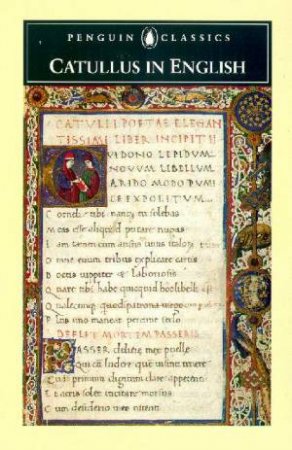 PENGUIN CLASSICS
CATULLUS IN ENGLISH
CATVLLI POETAE ELEGAN
TISSIMI LIBER INCIPIT
VIDONO LEPIDVM
NOVVM LIBELLVM
ARIDO MODO PVMI
CE EXPOLITVM
Corneli tibi nanq; tu solebas
Meas esse aliquid putare nugas
Iam tum cum ausus es unus italorum
Omne euum tribus explicare cartis
Doctis iuppiter & laboriosis
Quare tibi habe quicquid hoc libelli est
Qualecunq; quod patrona uirgo
Plus uno maneat perenne seclo
DEFLET MORTEM PASSERIS
PASSER delitie mee puelle
Qui cum ludere quem in sinu tenere
Cui primum digitum dare appetenti
Et acris solet incitare morsus
Cum desiderio meo nitenti